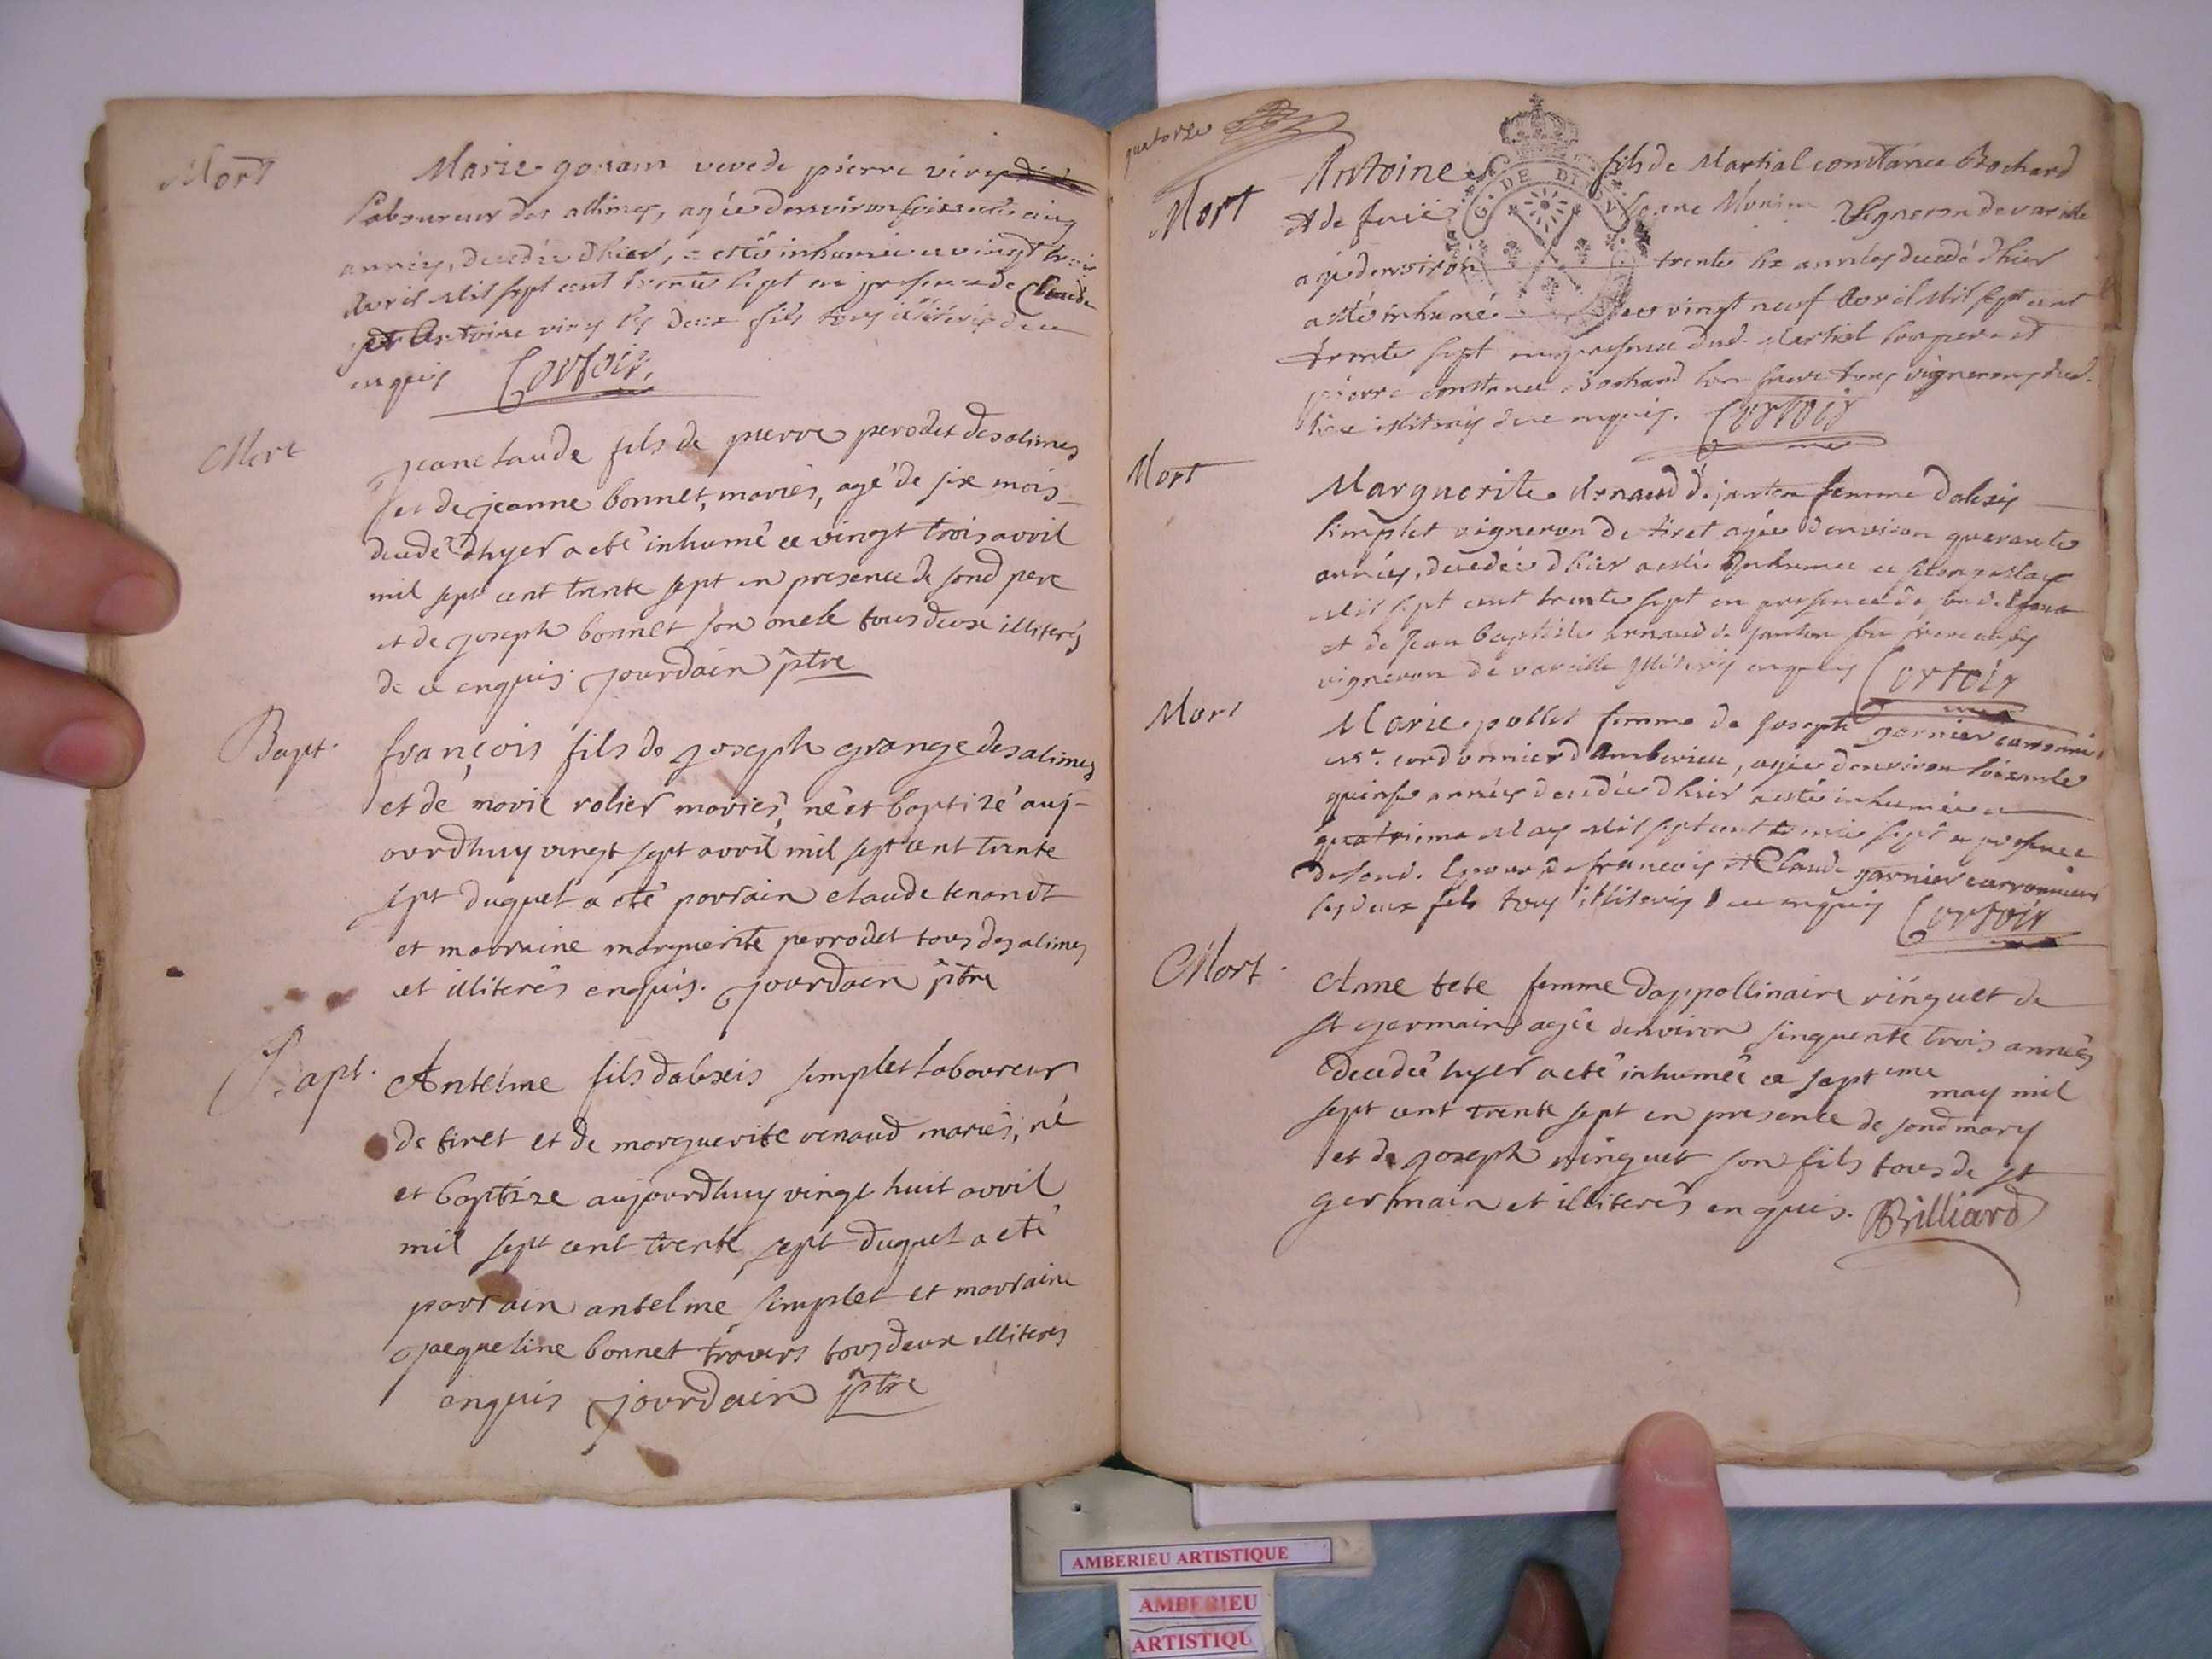 Mort
Marie gonam veve de pierre virey
Laboureur des allimes, agée denviron soissente cinq
années, decedée d'hier, a esté inhumée ce vingt trois
Avril Mil sept cent trente sept en presence de Claude
et Antoine virey ses deux fils tous illiterés de ce
enquis Cortois
Mort
jeanclaude fils de pierre perodet des alimes
et de jeanne bonnet, mariés, agé de six mois
decedé d'hyer a eté inhumé ce vingt trois avril
mil sept cent trente sept en presence de sond pere
et de joseph bonnet son oncle tous deux illiterés
de ce enquis jourdain ptre
Bapt.
françois fils de joseph grange des alimes
et de marie rolier mariés, né et baptizé auj-
ourdhuy vingt sept avril mil sept cent trente
sept duquel a eté parrain claude tenandt
et marraine marguerite perrodet tous des alimes
et illiterés enquis. jourdain ptre
Bapt.
Antelme fils dalexis simplet laboureur
de tiret et de marguerite renaud mariés, né
et baptize aujourdhuy vingt huit avril
mil sept cent trente sept duquel a eté
parrain antelme simplet et marraine
jaqueline bonnet travers tous deux illiteres
enquis jourdain ptre
quatorze
G. DE DI
Mort
Antoine fils de Martial constance Bochard
et de feüe jeanne Monin Vigneron de vareille
agé denviron trente six années decedé d'hier
a esté inhumé ce vingt neuf Avril Mil sept cent
trente sept en presence dud. Martial son pere et
pierre constance Bochard son frere tous vignerons dud.
lieu illiterés de ce enquis. Cortois
Mort
Marguerite Arnaud d. janton femme dalexis
simplet vigneron de tiret agée denviron quarante
années, decedée d'hier a esté Inhumée ce second May
Mil sept cent trente sept en presence de
et de Jean baptiste arnaud d. janton son frere
vigneron de vareille illiterés enquis Cortois
Mort
Marie pollet femme de joseph garnier carronnier
Me. cordonnier d'Amberieu, agée denviron soixante
quinse années decedée d'hier a esté inhumée ce
quatrieme May Mil sept cent trente sept en presence
de sond. Epoux de francois et Claude garnier carronnier
ses deux fils tous illiterés de ce enquis Cortois
Mort.
Anne tete femme dappollinaire ringuet de
st germain agée denviron sinquente trois années
decedée hyer a eté inhumée ce septieme may mil
sept cent trente sept en presence de sond mary
et de joseph ringuet son fils tous de st
germain et illiterés enquis. Billiard
AMBERIEU ARTISTIQUE
AMBERIEU
ARTISTIQU